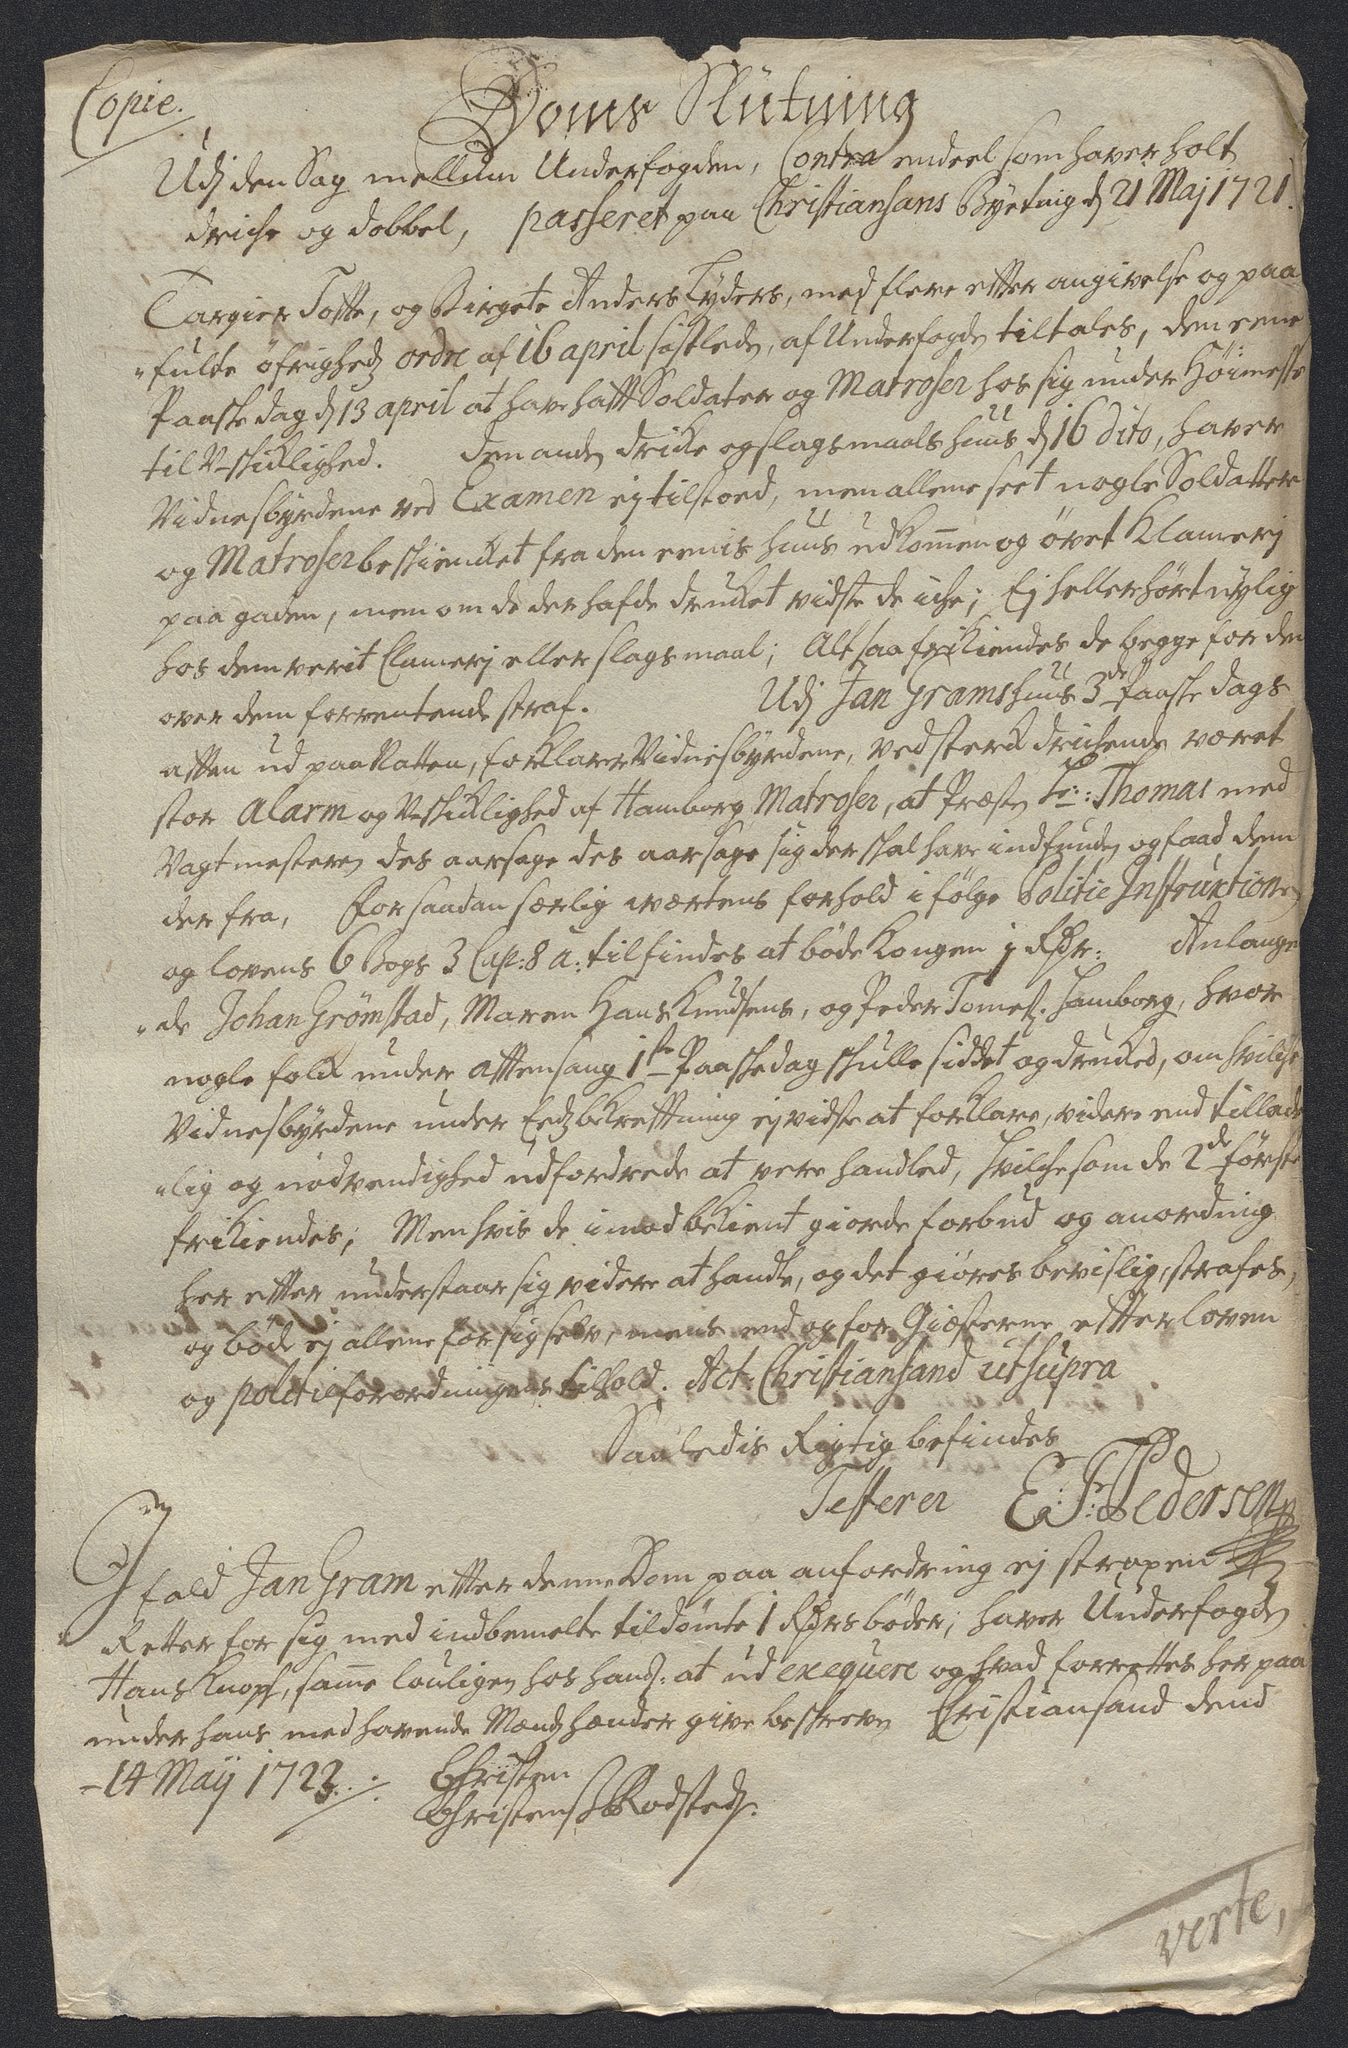 Copie.
Doms Slutning
Udj den Sag mellum Underfogden, Contra endeel som haver holt
driche og dobbel, passeret paa Christiansans Byeting d 21 Maj 1721.
Targier Totte, og Birgete Anders Tyders, med flere efter angivelse og paa
"fulte øfrigheds ordre af 16 april sistleden, af Underfogden tiltales, den eene
Paaske dag d 13 april at have hafft Soldater og Matroser hos sig under Høimesse
til U-skicklighed. den anden dricke og slagsmaals huus d 16 dito, haver
Vidnesbyrdene ved Examen ej tilstoed, men allene seet nogle Soldatter
og Matroser beskiencket fra den eenis huus udkommen og øvet Klamerj
paa gaden, men om de der hafde drucket vidste de iche; Ej heller hørt nylig
hos dem verit Clamerj eller slagsmaal; Altsaa frikiendes de begge for den
over dem forventende straf. Udj Jan Grams huus 3de Paaske dags
afften ud paa Natten, forklarer Vidnesbyrdene, ved sterck drichende været
stor Alarm og U-skicklighed af Hamborg Matroser, at Præsten Hr: Thomas med
Vagtmesteren des aarsage des aarsage sig der skal have indfunden og faad dem
der fra, For saadan særlig værtens forhold i følge Politie Instruction
og lovens 6 Bogs 3 Cap: 8 a: tilfindes at bøde Kongen 1 Rdr: Anlangen
"de Johan Grømstad, Maren Hans Knudsens, og Peder Tomes. Hamborg, hvor
nogle folck under afftensang 1ste Paaskedag skulle siddet og drucked, om hvilche
Vidnesbyrdene under Eeds bekrefftning ej vidste at forklare, videre end tillade
"lig og nødvendighed udfordrede at vere handled, hvilche som de 2de første
frikiendes; Men hvis de imod bekient giorde forbud og anordning
her efter understaar sig videre at handle, og det giøres bevislig, strafes,
og bøde ej allene for sig selv, mens end og for Giæsterne effter loven
og politie forordningens tilhold. Act: Christiansand ut supra
Saaledis Rigtig befindes
Testerer E: P: Pedersen
I fald Jan Gram efter denne Dom paa anfordring ej strax
Retter for sig med indbemelte tildømte 1 Rdrs bøder; haver Underfogden
Hans Knopf, samme louligen hos hands: at ud exequere og hvad forrettes her paa
under hans med havende Mænds hænder give beskreven Christiansand dend
- 14 Maij 1722.
Christen
Christens Rodsteds.
verte,